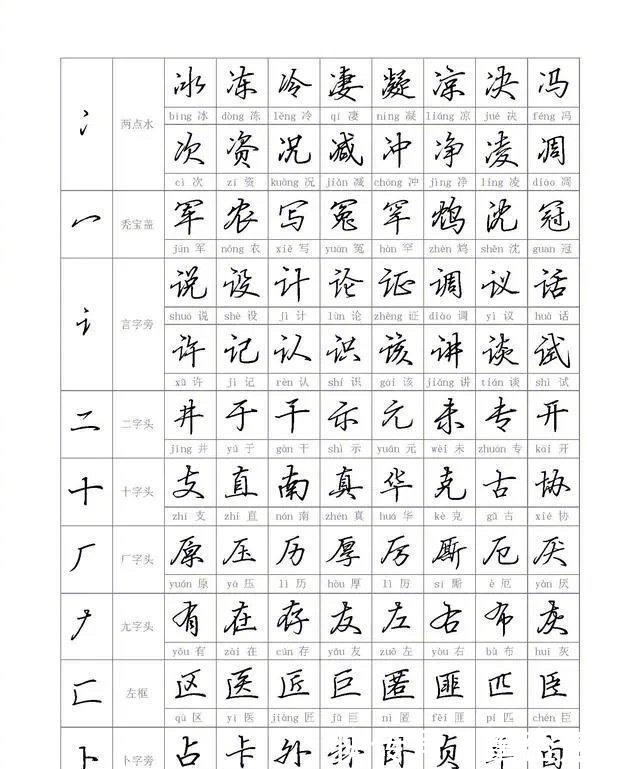 冫 两点水 冰 冻 冷 凄 凝 凉 决 冯
bīng 冰 dòng 冻 lěng 冷 qī 凄 níng 凝 liáng 凉 jué 决 féng 冯
次 资 况 减 冲 净 凌 凋
cì 次 zī 资 kuàng 况 jiǎn 减 chōng 冲 jìng 净 líng 凌 diāo 凋
冖 秃宝盖 军 农 写 冤 罕 鸩 沈 冠
jūn 军 nóng 农 xiě 写 yuān 冤 hàn 罕 zhèn 鸩 shěn 沈 guan 冠
讠 言字旁 说 设 计 论 证 调 议 话
shuō 说 shè 设 jì 计 lùn 论 zhèng 证 diào 调 yì 议 huà 话
许 记 认 识 该 讲 谈 试
xǔ 许 jì 记 rèn 认 shí 识 gāi 该 jiǎng 讲 tán 谈 shì 试
二 二字头 井 于 干 示 元 未 专 开
jǐng 井 yú 于 gàn 干 shì 示 yuán 元 wèi 未 zhuān 专 kāi 开
十 十字头 支 直 南 真 华 克 古 协
zhī 支 zhí 直 nán 南 zhēn 真 huá 华 kè 克 gǔ 古 xié 协
厂 厂字头 原 压 历 厚 厉 厮 厄 厌
yuán 原 yā 压 lì 历 hòu 厚 lì 厉 sī 厮 è 厄 yàn 厌
𠂇 尢字头 有 在 存 友 左 右 布 灰
yǒu 有 zài 在 cún 存 yǒu 友 zuǒ 左 yòu 右 bù 布 huī 灰
匚 左框 区 医 匠 巨 匿 匪 匹 臣
qū 区 yī 医 jiàng 匠 jù 巨 nì 匿 fěi 匪 pǐ 匹 chén 臣
卜 卜字旁 占 卡 外 贞